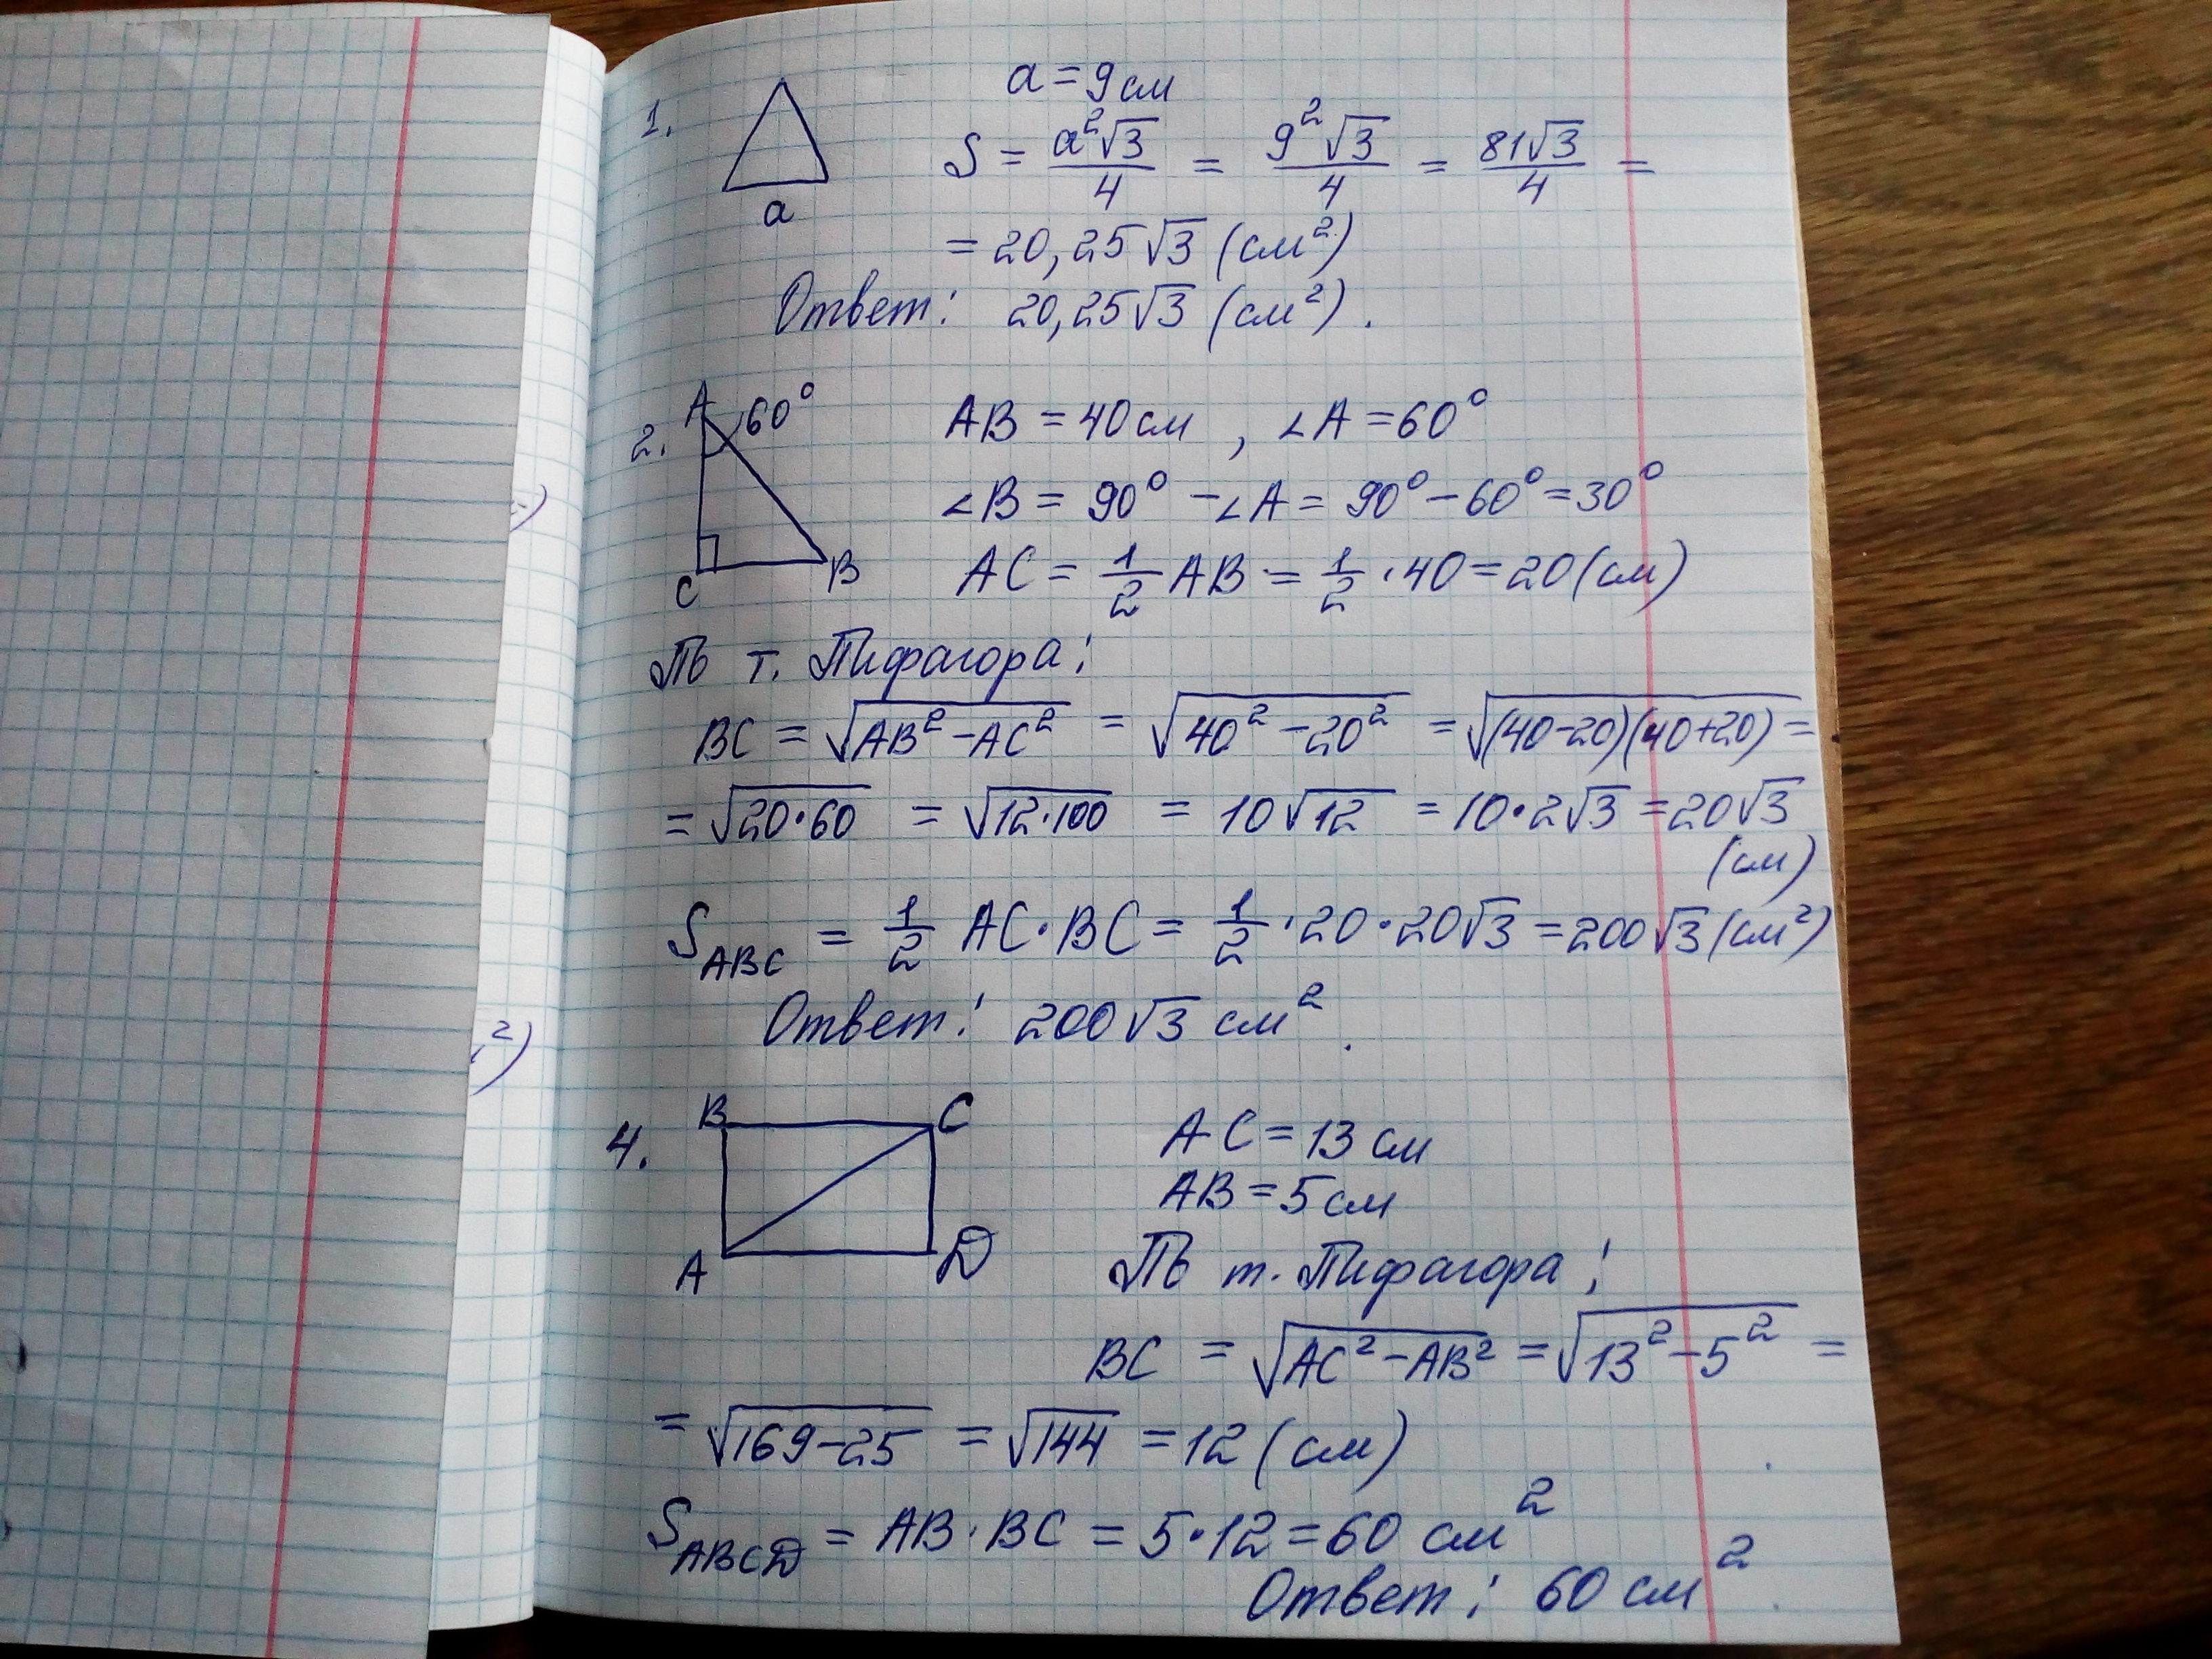 1.
a
a = 9 см
S = a²√3/4 = 9²√3/4 = 81√3/4 =
= 20,25√3 (см²)
Ответ: 20,25√3 (см²).
2.
A 60°
C B
AB = 40 см, ∠A = 60°
∠B = 90° - ∠A = 90° - 60° = 30°
AC = 1/2 AB = 1/2 · 40 = 20 (см)
По т. Пифагора:
BC = √(AB² - AC²) = √(40² - 20²) = √((40-20)(40+20)) =
= √(20·60) = √(12·100) = 10√12 = 10·2√3 = 20√3
(см)
S_ABC = 1/2 AC · BC = 1/2 · 20 · 20√3 = 200√3 (см²)
Ответ: 200√3 см².
4.
B C
A D
AC = 13 см
AB = 5 см
По т. Пифагора:
BC = √(AC² - AB²) = √(13² - 5²) =
= √(169-25) = √144 = 12 (см)
S_ABCD = AB · BC = 5·12 = 60 см²
Ответ: 60 см².